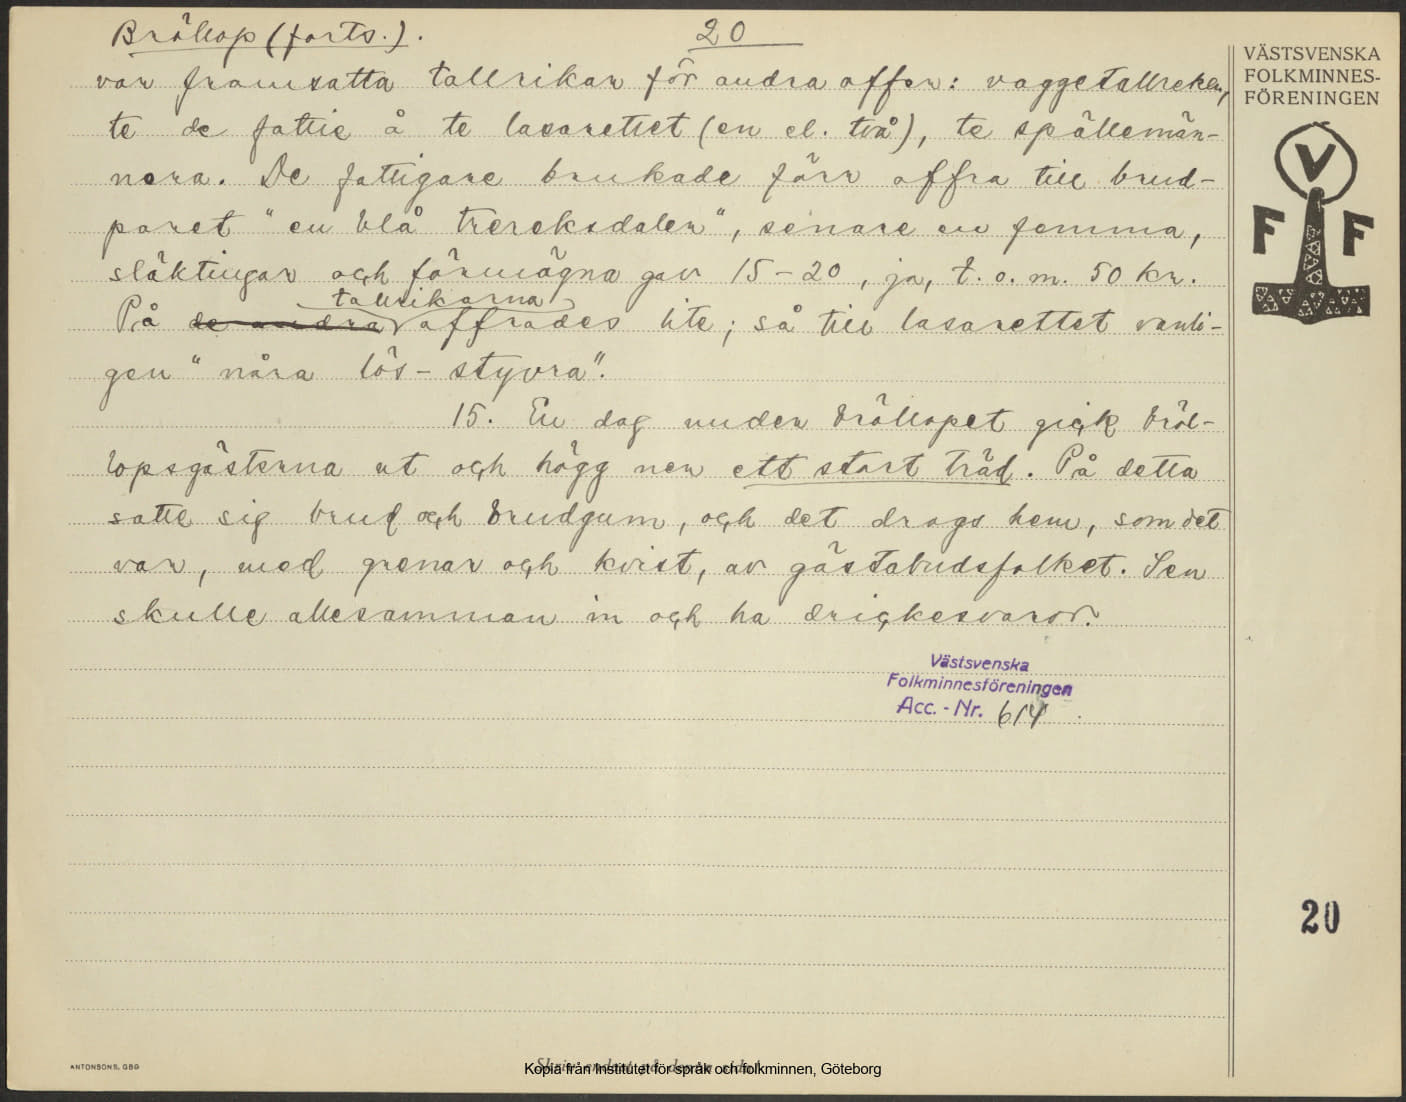 Bröllop (forts.).
20
var framsatta tallrikar för andra offer: vaggetallreken,
te de fattie å te lasarettet (en el. två), te spällemän-
nera. De fattigare brukade förr offra till brud-
paret "en blå trereksdaler", senare en femma,
släktingar och förmögna gav 15-20, ja, t.o.m. 50 kr.
tallrikarna
På de andra offrades lite; så till lasarettet vanli-
gen "nåra lös-styvra".
15. En dag under bröllopet gick bröl-
lopsgästerna ut och högg ner ett stort träd. På detta
satte sig brud och brudgum, och det drogs hem, som det
var, med grenar och kvist, av gästabudsfolket. Sen
skulle allesamman in och ha drickesvaror.
Västsvenska
Folkminnesföreningen
Acc.-Nr. 614
VÄSTSVENSKA
FOLKMINNES-
FÖRENINGEN
V
F F
20
ANTONSONS, GBG
Kopia från Institutet för språk och folkminnen, Göteborg